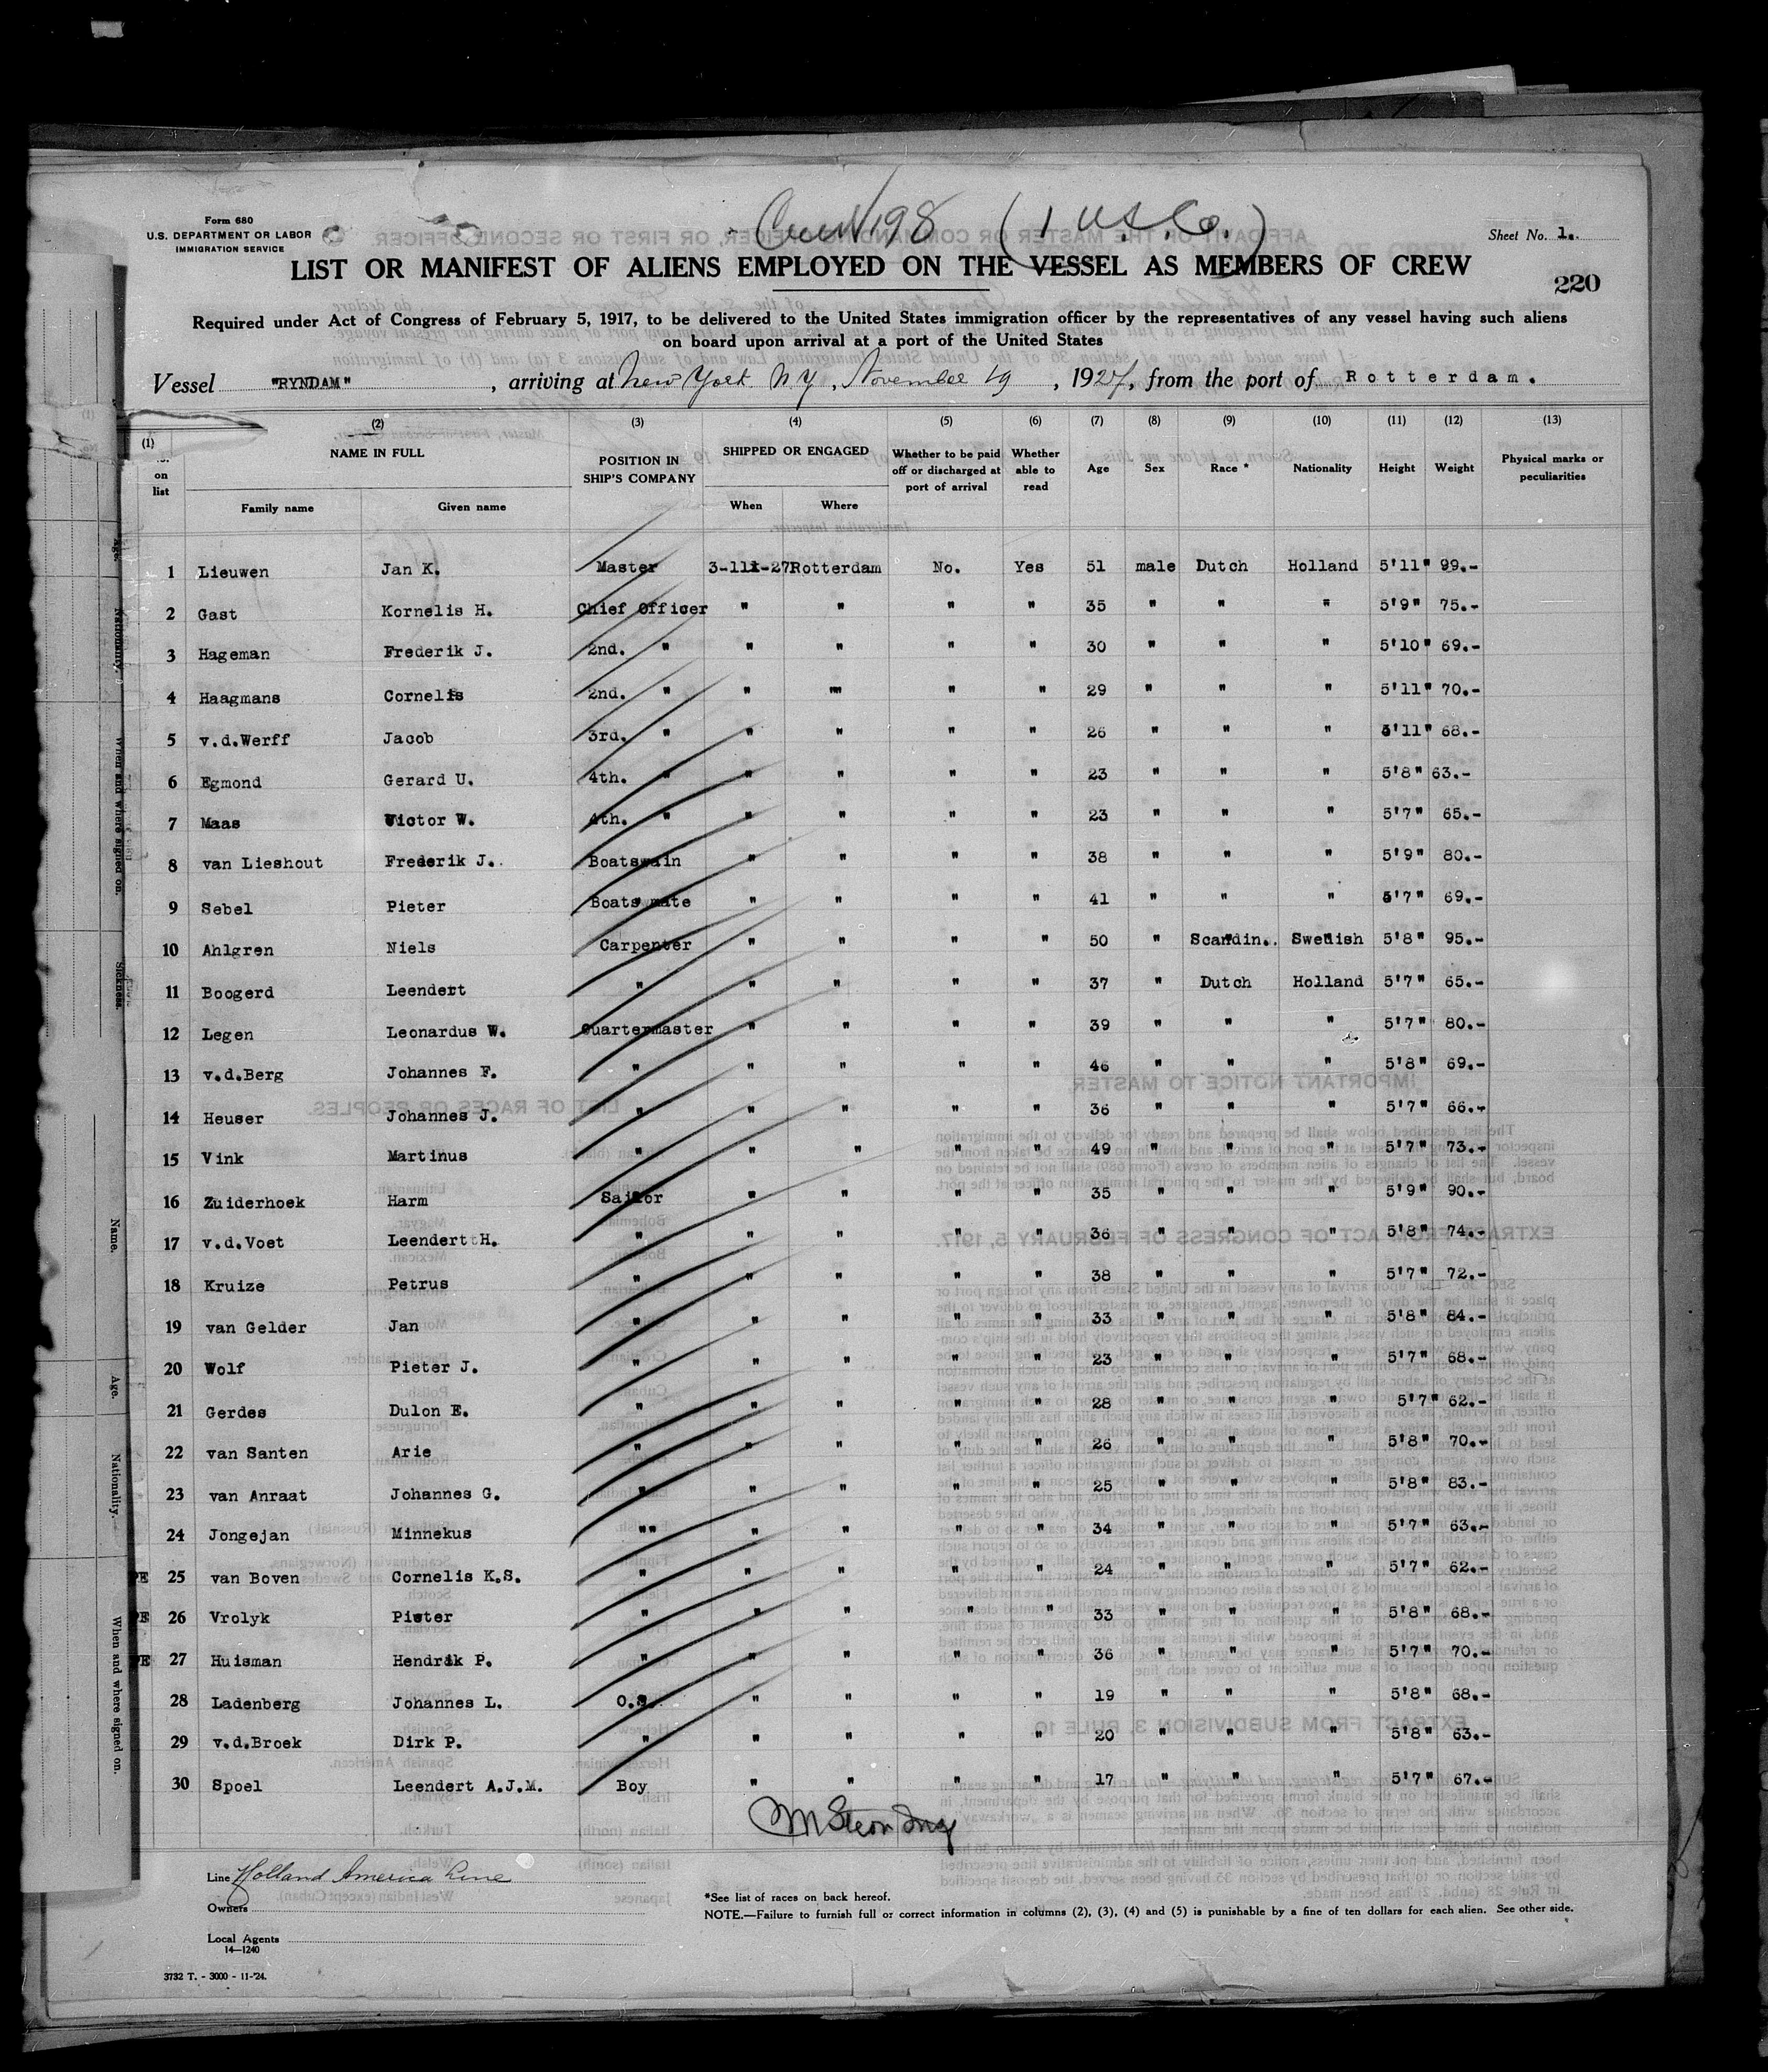 Form 680
U.S. DEPARTMENT OR LABOR
IMMIGRATION SERVICE
198 (1 U.S. Co.)
Sheet No. 1.
LIST OR MANIFEST OF ALIENS EMPLOYED ON THE VESSEL AS MEMBERS OF CREW
220
Required under Act of Congress of February 5, 1917, to be delivered to the United States immigration officer by the representatives of any vessel having such aliens
on board upon arrival at a port of the United States
Vessel "RYNDAM", arriving at New York NY, November 19, 1927, from the port of Rotterdam.
(1) (2) (3) (4) (5) (6) (7) (8) (9) (10) (11) (12) (13)
on list NAME IN FULL Family name Given name POSITION IN SHIP'S COMPANY SHIPPED OR ENGAGED When Where Whether to be paid off or discharged at port of arrival Whether able to read Age Sex Race * Nationality Height Weight Physical marks or peculiarities
1 Lieuwen Jan K. Master 3-11-27 Rotterdam No. Yes 51 male Dutch Holland 5'11" 99.-
2 Gast Kornelis H. Chief Officer " " " " 35 " " " 5'9" 75.-
3 Hageman Frederik J. 2nd. " " " " " 30 " " " 5'10" 69.-
4 Haagmans Cornelis 2nd. " " " " " 29 " " " 5'11" 70.-
5 v.d.Werff Jacob 3rd. " " " " " 26 " " " 5'11" 68.-
6 Egmond Gerard U. 4th. " " " " " 23 " " " 5'8" 63.-
7 Maas Victor W. 4th. " " " " " 23 " " " 5'7" 65.-
8 van Lieshout Frederik J. Boatswain " " " " 38 " " " 5'9" 80.-
9 Sebel Pieter Boats mate " " " " 41 " " " 5'7" 69.-
10 Ahlgren Niels Carpenter " " " " 50 " Scandin. Swedish 5'8" 95.-
11 Boogerd Leendert " " " " " 37 " Dutch Holland 5'7" 65.-
12 Legen Leonardus W. Quartermaster " " " " 39 " " " 5'7" 80.-
13 v.d.Berg Johannes F. " " " " " 46 " " " 5'8" 69.-
14 Heuser Johannes J. " " " " " 36 " " " 5'7" 66.-
15 Vink Martinus " " " " " 49 " " " 5'7" 73.-
16 Zuiderhoek Harm Sailor " " " " 35 " " " 5'9" 90.-
17 v.d.Voet Leendert H. " " " " " 36 " " " 5'8" 74.-
18 Kruize Petrus " " " " " 38 " " " 5'7" 72.-
19 van Gelder Jan " " " " " 33 " " " 5'8" 84.-
20 Wolf Pieter J. " " " " " 23 " " " 5'7" 68.-
21 Gerdes Dulon E. " " " " " 28 " " " 5'7" 62.-
22 van Santen Arie " " " " " 26 " " " 5'8" 70.-
23 van Anraat Johannes G. " " " " " 25 " " " 5'8" 83.-
24 Jongejan Minnekus "" " " " " 34 " " " 5'7" 63.-
25 van Boven Cornelis K.S. " " " " " 24 " " " 5'7" 62.-
26 Vrolyk Pieter " " " " " 33 " " " 5'8" 68.-
27 Huisman Hendrik P. " " " " " 36 " " " 5'7" 70.-
28 Ladenberg Johannes L. O.S. " " " " 19 " " " 5'8" 68.-
29 v.d.Broek Dirk P. " " " " " 20 " " " 5'8" 63.-
30 Spoel Leendert A.J.M. Boy " " " " 17 " " " 5'7" 67.-
Line Holland America Line
Owners
Local Agents
14—1240
*See list of races on back hereof.
NOTE.—Failure to furnish full or correct information in columns (2), (3), (4) and (5) is punishable by a fine of ten dollars for each alien. See other side.
3732 T. - 3000 - 11-'24.